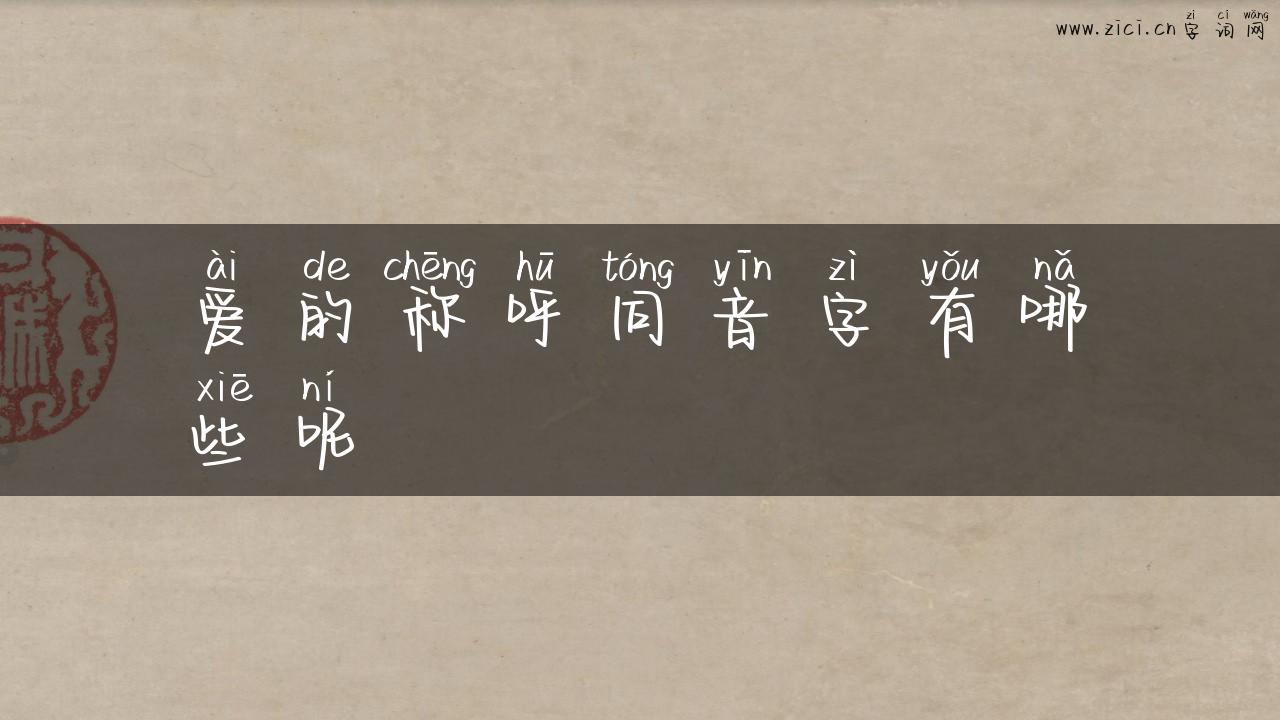 zì cí wǎng
www.zici.cn 字词网
ài de chēng hū tóng yīn zì yǒu nǎ
爱的称呼同音字有哪
xiē ní
些呢